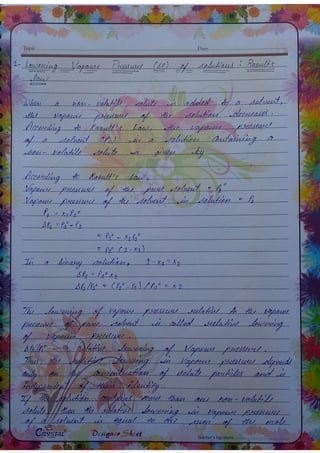 Topic
Date
1. Lowering Vapour Pressure (ΔP) of solutions : Raoult's
law:
When a non-volatile solute is added to a solvent,
the vapour pressure of the solution decreases.
According to Raoult's law, the vapour pressure
of a solvent (P₁) in a solution containing a
non-volatile solute is given by
According to Raoult's law,
Vapour pressure of the pure solvent = P₁°
Vapour pressure of the solvent in solution = P₁
P₁ = x₁P₁°
ΔP₁ = P₁° - P₁
= P₁° - x₁P₁°
= P₁° (1 - x₁)
In a binary solution, 1 - x₁ = x₂
ΔP₁ = P₁° x₂
ΔP₁/P₁° = (P₁° - P₁) / P₁° = x₂
The lowering of vapour pressure relative to the vapour
pressure of pure solvent is called relative lowering
of vapour pressure
ΔP₁/P₁° = Relative lowering of Vapour pressure.
Thus the relative lowering in Vapour pressure depends
only on the concentration of solute particles and is
independent of their identity.
If the solution contains more than one non-volatile
solute, then the relative lowering in vapour pressure
of a solvent is equal to the sum of the mole
CRYSTAL Designer Sheet
Teacher's Signature